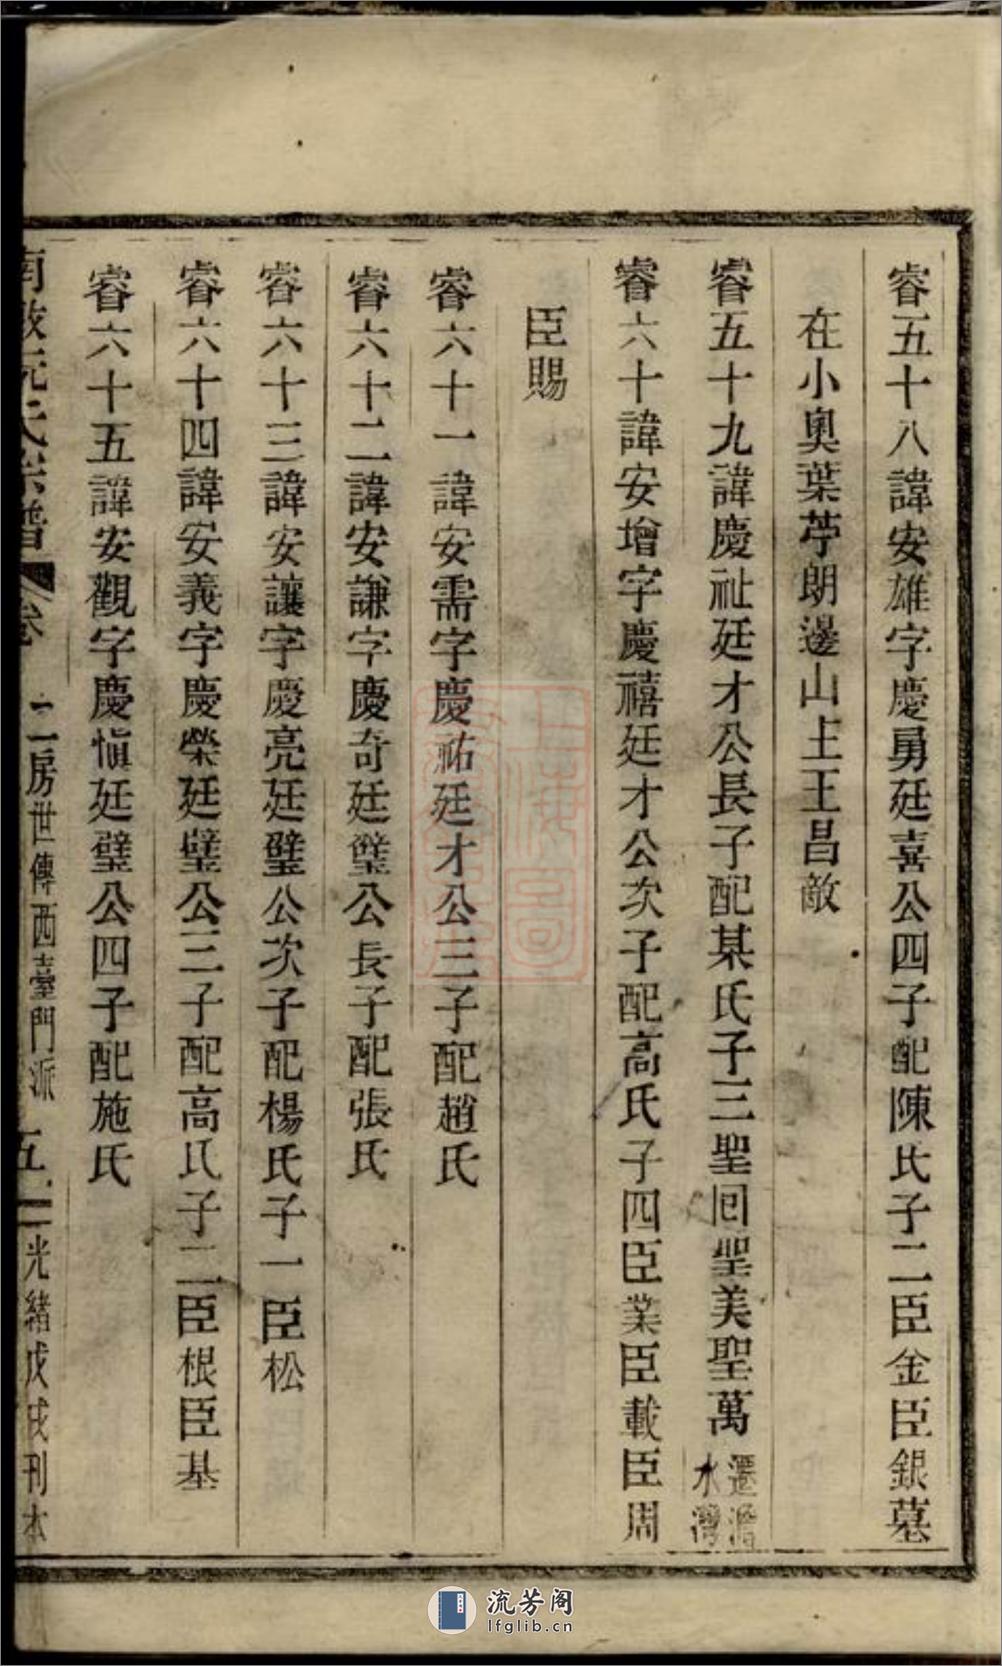 睿五十八諱安雄字慶勇廷喜公四子配陳氏子二臣金臣銀墓
在小奧葉苧朗邊山上王昌敵
睿五十九諱慶祉廷才公長子配某氏子三聖回聖美聖萬
遷
水灣
睿六十諱安增字慶禧廷才公次子配高氏子四臣業臣載臣周
臣賜
睿六十一諱安需字慶祐廷才公三子配趙氏
睿六十二諱安謙字慶奇廷璧公長子配張氏
睿六十三諱安讓字慶亮廷璧公次子配楊氏子一臣松
睿六十四諱安義字慶榮廷璧公三子配高氏子二臣根臣基
睿六十五諱安觀字慶慎廷璧公四子配施氏
氏宗譜
卷
二房世傳西臺門派
五
光緒戊戌刊本
流芳阁
lfglib.cn